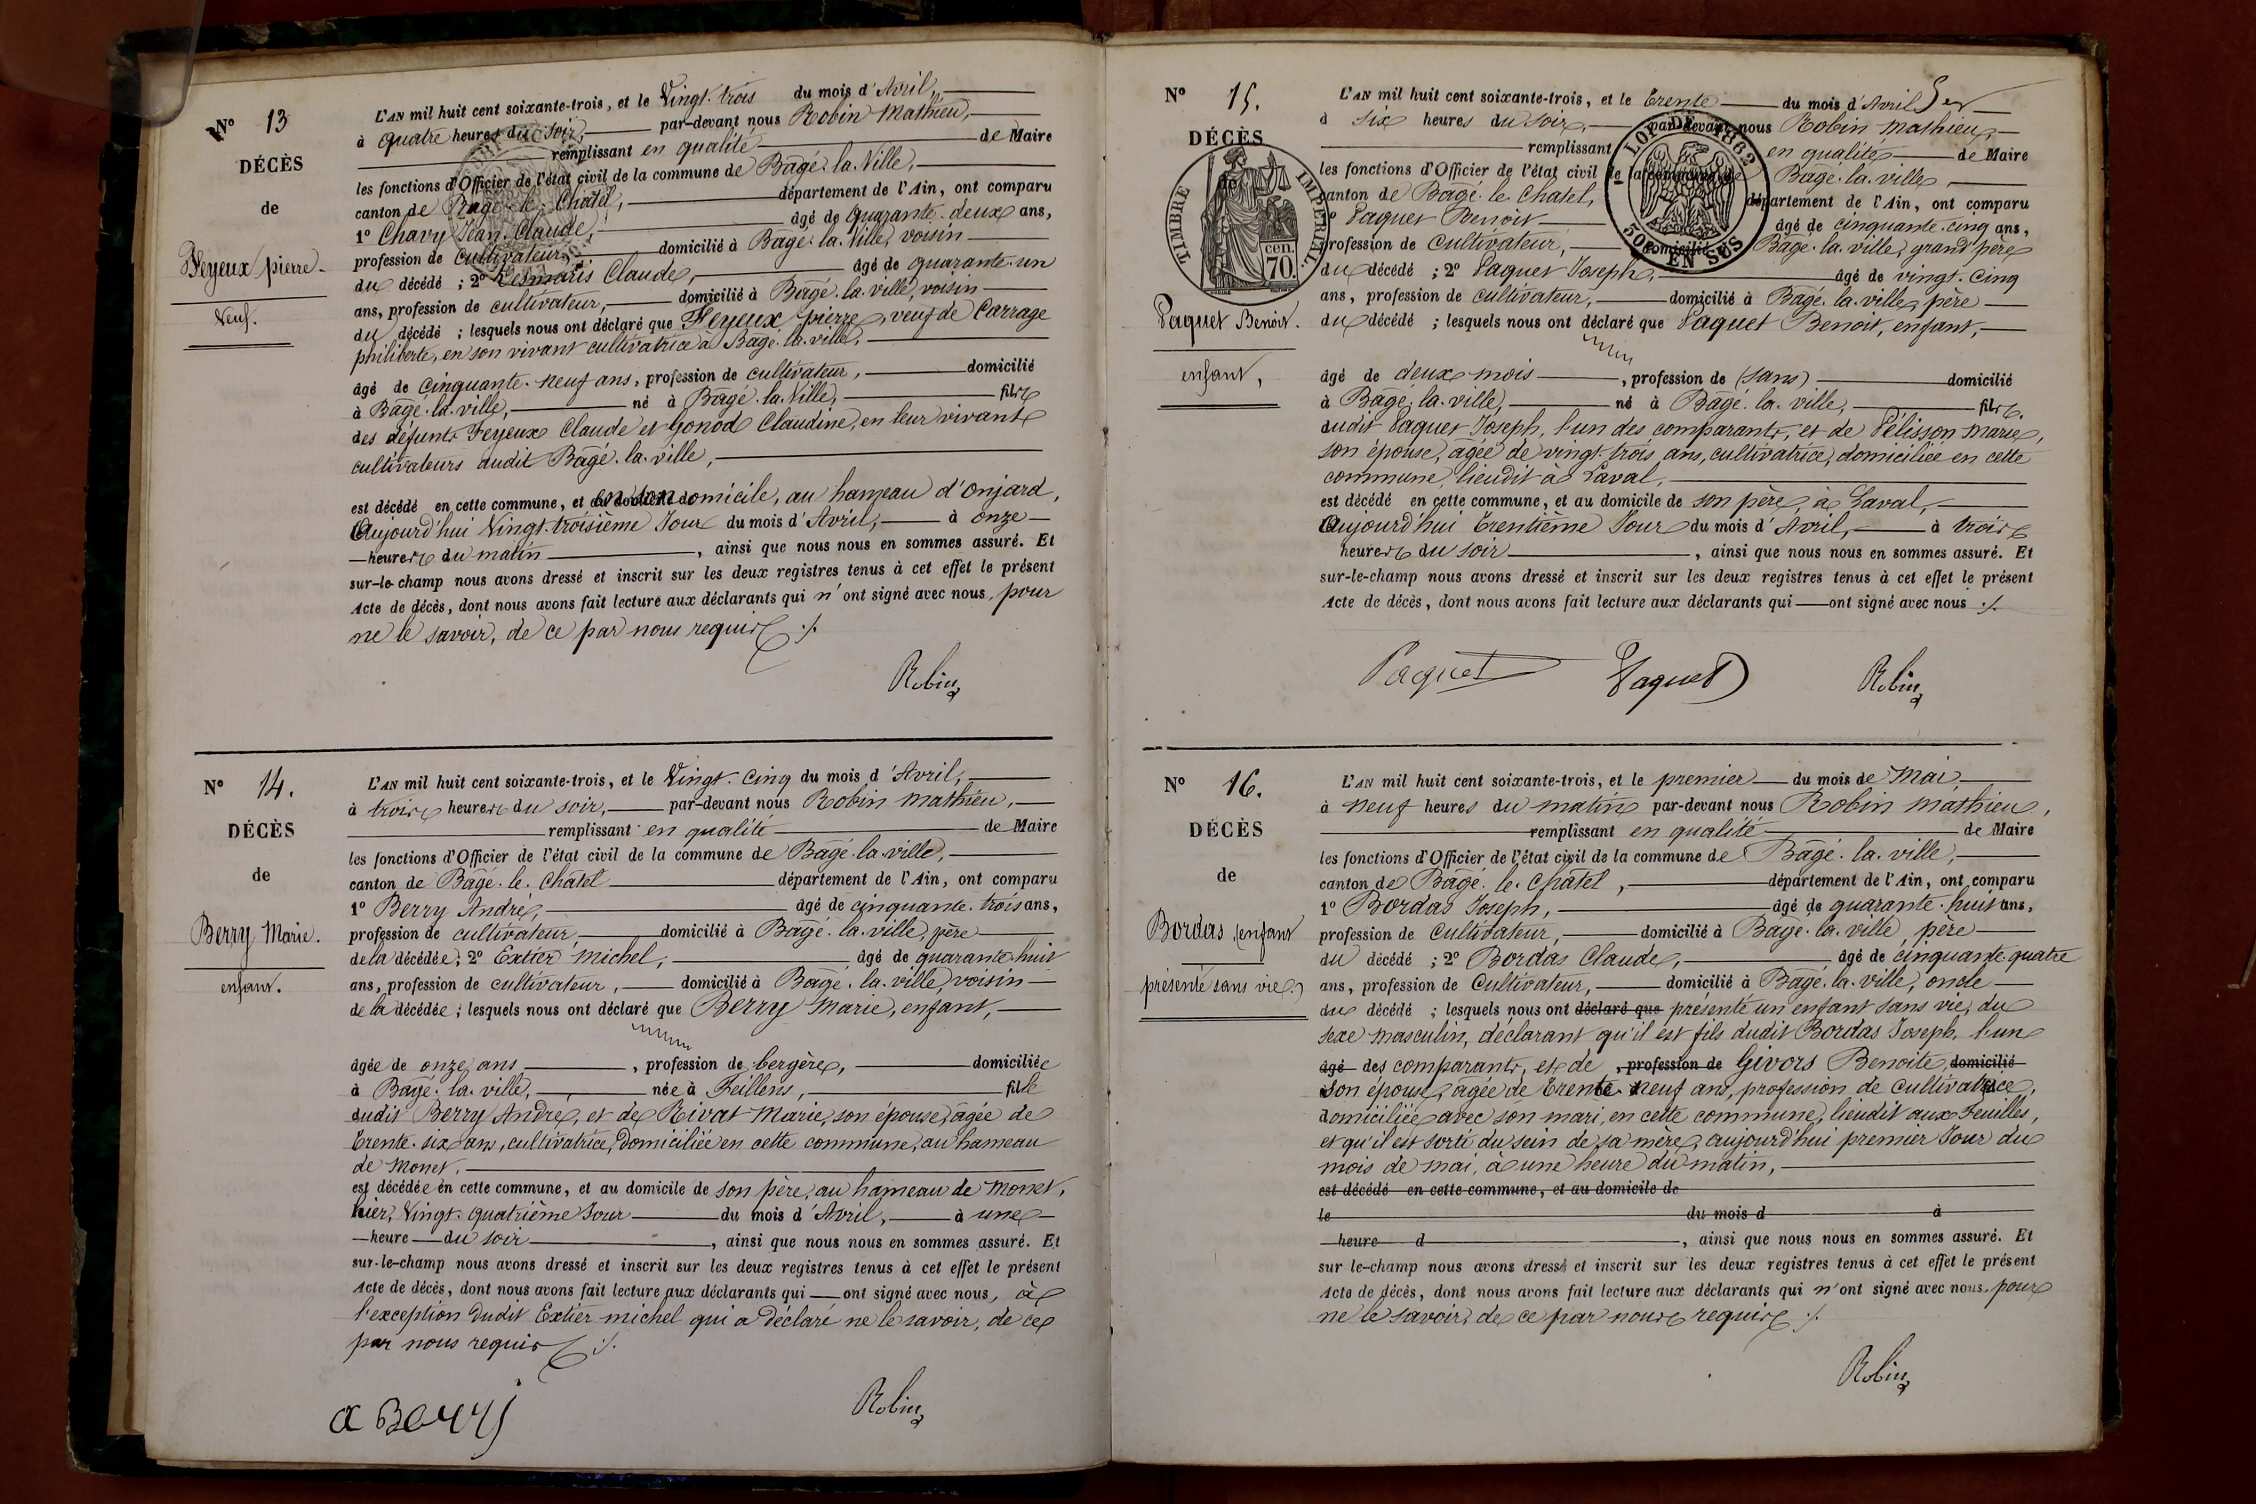 N° 13
DÉCÈS
de
Feyeux pierre.
Veuf.
L'AN mil huit cent soixante-trois, et le Vingt-trois du mois d'Avril,
à quatre heures du Soir, par-devant nous Robin Mathieu,
remplissant en qualité de Maire
les fonctions d'Officier de l'état civil de la commune de Bâgé-la-Ville,
canton de Bâgé-le-Châtel, département de l'Ain, ont comparu
1° Chavy Jean-Claude, âgé de quarante-deux ans,
profession de cultivateur, domicilié à Bâgé-la-Ville, voisin
du décédé ; 2° Desmaris Claude, âgé de quarante-un
ans, profession de cultivateur, domicilié à Bâgé-la-ville, voisin
du décédé ; lesquels nous ont déclaré que Feyeux pierre, veuf de Carrage
philiberte, en son vivant cultivatrice à Bâgé-la-ville,
âgé de cinquante-neuf ans, profession de cultivateur, domicilié
à Bâgé-la-ville, né à Bâgé-la-Ville, fils
des défunts Feyeux Claude et Gonod Claudine, en leur vivant
cultivateurs audit Bâgé-la-ville,
est décédé en cette commune, et en son domicile, au hameau d'onjard,
Aujourd'hui Vingt-troisième Jour du mois d'Avril, à onze
heures du matin, ainsi que nous nous en sommes assuré. Et
sur-le-champ nous avons dressé et inscrit sur les deux registres tenus à cet effet le présent
Acte de décès, dont nous avons fait lecture aux déclarants qui n'ont signé avec nous, pour
ne le savoir, de ce par nous requis ./.
Robin
N° 14.
DÉCÈS
de
Berry Marie.
enfant.
L'AN mil huit cent soixante-trois, et le Vingt-cinq du mois d'Avril,
à trois heures du soir, par-devant nous Robin Mathieu,
remplissant en qualité de Maire
les fonctions d'Officier de l'état civil de la commune de Bâgé-la-ville,
canton de Bâgé-le-Châtel département de l'Ain, ont comparu
1° Berry André, âgé de cinquante-trois ans,
profession de cultivateur, domicilié à Bâgé-la-ville, père
de la décédée ; 2° Extier michel, âgé de quarante-huit
ans, profession de cultivateur, domicilié à Bâgé-la-ville, voisin
de la décédée ; lesquels nous ont déclaré que Berry Marie, enfant,
âgée de onze ans, profession de bergère, domiciliée
à Bâgé-la-ville, née à Feillens, fille
dudit Berry André, et de Rivat Marie, son épouse, âgée de
trente-six ans, cultivatrice, domiciliée en cette commune, au hameau
de Monet,
est décédée en cette commune, et au domicile de son père, au hameau de Monet,
hier, Vingt-quatrième Jour du mois d'Avril, à une
heure du soir, ainsi que nous nous en sommes assuré. Et
sur-le-champ nous avons dressé et inscrit sur les deux registres tenus à cet effet le présent
Acte de décès, dont nous avons fait lecture aux déclarants qui ont signé avec nous, à
l'exception dudit Extier michel qui a déclaré ne le savoir, de ce
par nous requis ./.
a Berry
Robin
N° 15.
DÉCÈS
de
TIMBRE IMPERIAL
70 cen.
Paquet Benoit.
enfant,
LOI DE 1862
50 EN SUS
L'AN mil huit cent soixante-trois, et le trente du mois d'Avril
à six heures du soir, par-devant nous Robin mathieu,
remplissant en qualité de Maire
les fonctions d'Officier de l'état civil de la commune de Bâgé-la-ville
canton de Bâgé-le-Châtel, département de l'Ain, ont comparu
1° Paquet Benoit âgé de cinquante-cinq ans,
profession de cultivateur, domicilié à Bâgé-la-ville, grand'père
du décédé ; 2° Paquet Joseph, âgé de vingt-cinq
ans, profession de cultivateur, domicilié à Bâgé-la-ville, père
du décédé ; lesquels nous ont déclaré que Paquet Benoit, enfant,
âgé de deux mois, profession de (sans) domicilié
à Bâgé-la-ville, né à Bâgé-la-ville, fils
dudit Paquet Joseph, l'un des comparants, et de Pélisson Marie,
son épouse, âgée de vingt-trois ans, cultivatrice, domiciliée en cette
commune, lieudit à Laval,
est décédé en cette commune, et au domicile de son père, à Laval,
Aujourd'hui trentième Jour du mois d'Avril, à trois
heures du soir, ainsi que nous nous en sommes assuré. Et
sur-le-champ nous avons dressé et inscrit sur les deux registres tenus à cet effet le présent
Acte de décès, dont nous avons fait lecture aux déclarants qui ont signé avec nous ./.
Paquet Paquet Robin
N° 16.
DÉCÈS
de
Bordas, enfant
présenté sans vie.
L'AN mil huit cent soixante-trois, et le premier du mois de Mai,
à neuf heures du matin par-devant nous Robin Mathieu,
remplissant en qualité de Maire
les fonctions d'Officier de l'état civil de la commune de Bâgé-la-ville,
canton de Bâgé-le-Châtel, département de l'Ain, ont comparu
1° Bordas Joseph, âgé de quarante-huit ans,
profession de Cultivateur, domicilié à Bâgé-la-ville, père
du décédé ; 2° Bordas Claude, âgé de cinquante-quatre
ans, profession de Cultivateur, domicilié à Bâgé-la-ville, oncle
du décédé ; lesquels nous ont déclaré que présenté un enfant sans vie, du
sexe masculin, déclarant qu'il est fils dudit Bordas Joseph, l'un
âgé des comparants, et de , profession de Givors Benoite, domicilié
Son épouse, âgée de trente-neuf ans, profession de cultivatrice,
domiciliée avec son mari, en cette commune, lieudit aux Feuilles,
et qu'il est sorti du sein de sa mère, aujourd'hui premier Jour du
mois de mai, à une heure du matin,
est décédé en cette commune, et au domicile de
le du mois d à
heure d , ainsi que nous nous en sommes assuré. Et
sur-le-champ nous avons dressé et inscrit sur les deux registres tenus à cet effet le présent
Acte de décès, dont nous avons fait lecture aux déclarants qui n'ont signé avec nous, pour
ne le savoir, de ce par nous requis ./.
Robin